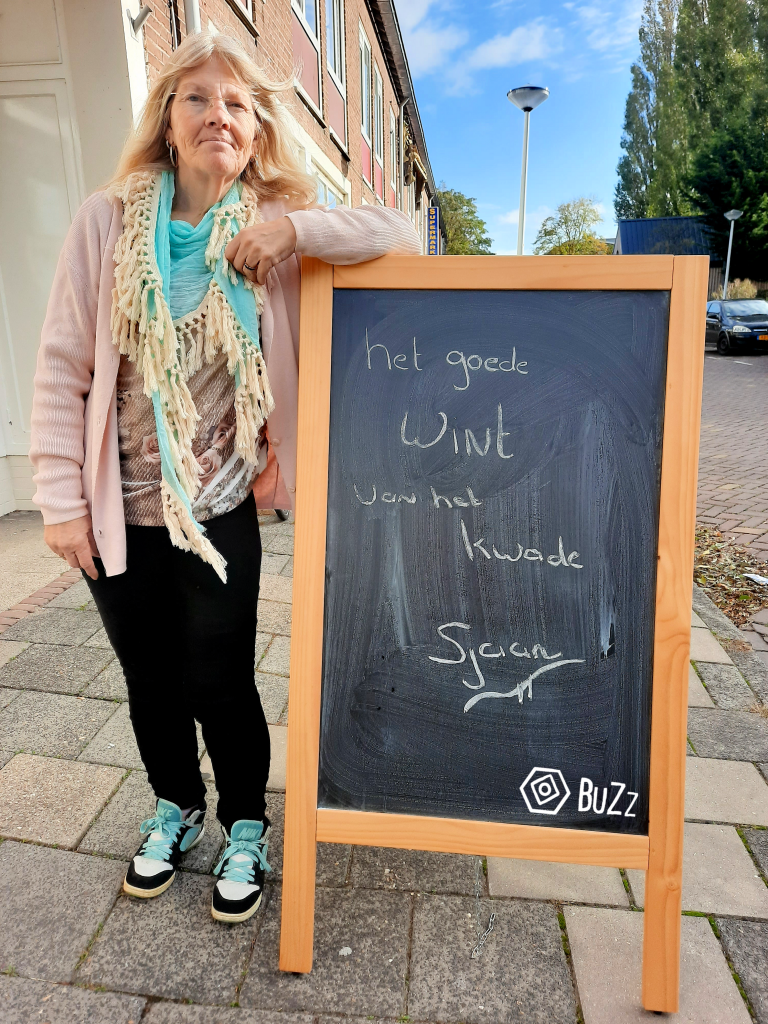 SUPERMARK
het goede
Wint
van het
kwade
Sjaan
BuZz